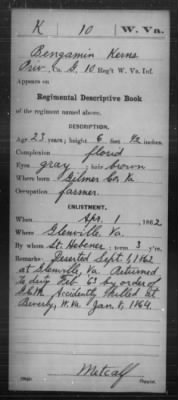 K 10 W. Va.
Bengamin Kerns
Priv, Co. G, 10 Reg't W. Va. Inf.
Appears on
Regimental Descriptive Book
of the regiment named above.
DESCRIPTION.
Age 23 years; height 6 feet inches.
Complexion florid
Eyes gray; hair brown
Where born Gilmer Co. Va
Occupation farmer.
ENLISTMENT.
When Apr. 1, 1862
Where Glenville, Va.
By whom St. Hebener; term 3 y'rs.
Remarks: Deserted Sept. 1 1862
at Glenville, Va. Returned
to duty Feb '63 by order of
Accidently Killed at
Beverly, W. Va Jan. 8, 1864.
Metcalf
Copyist.